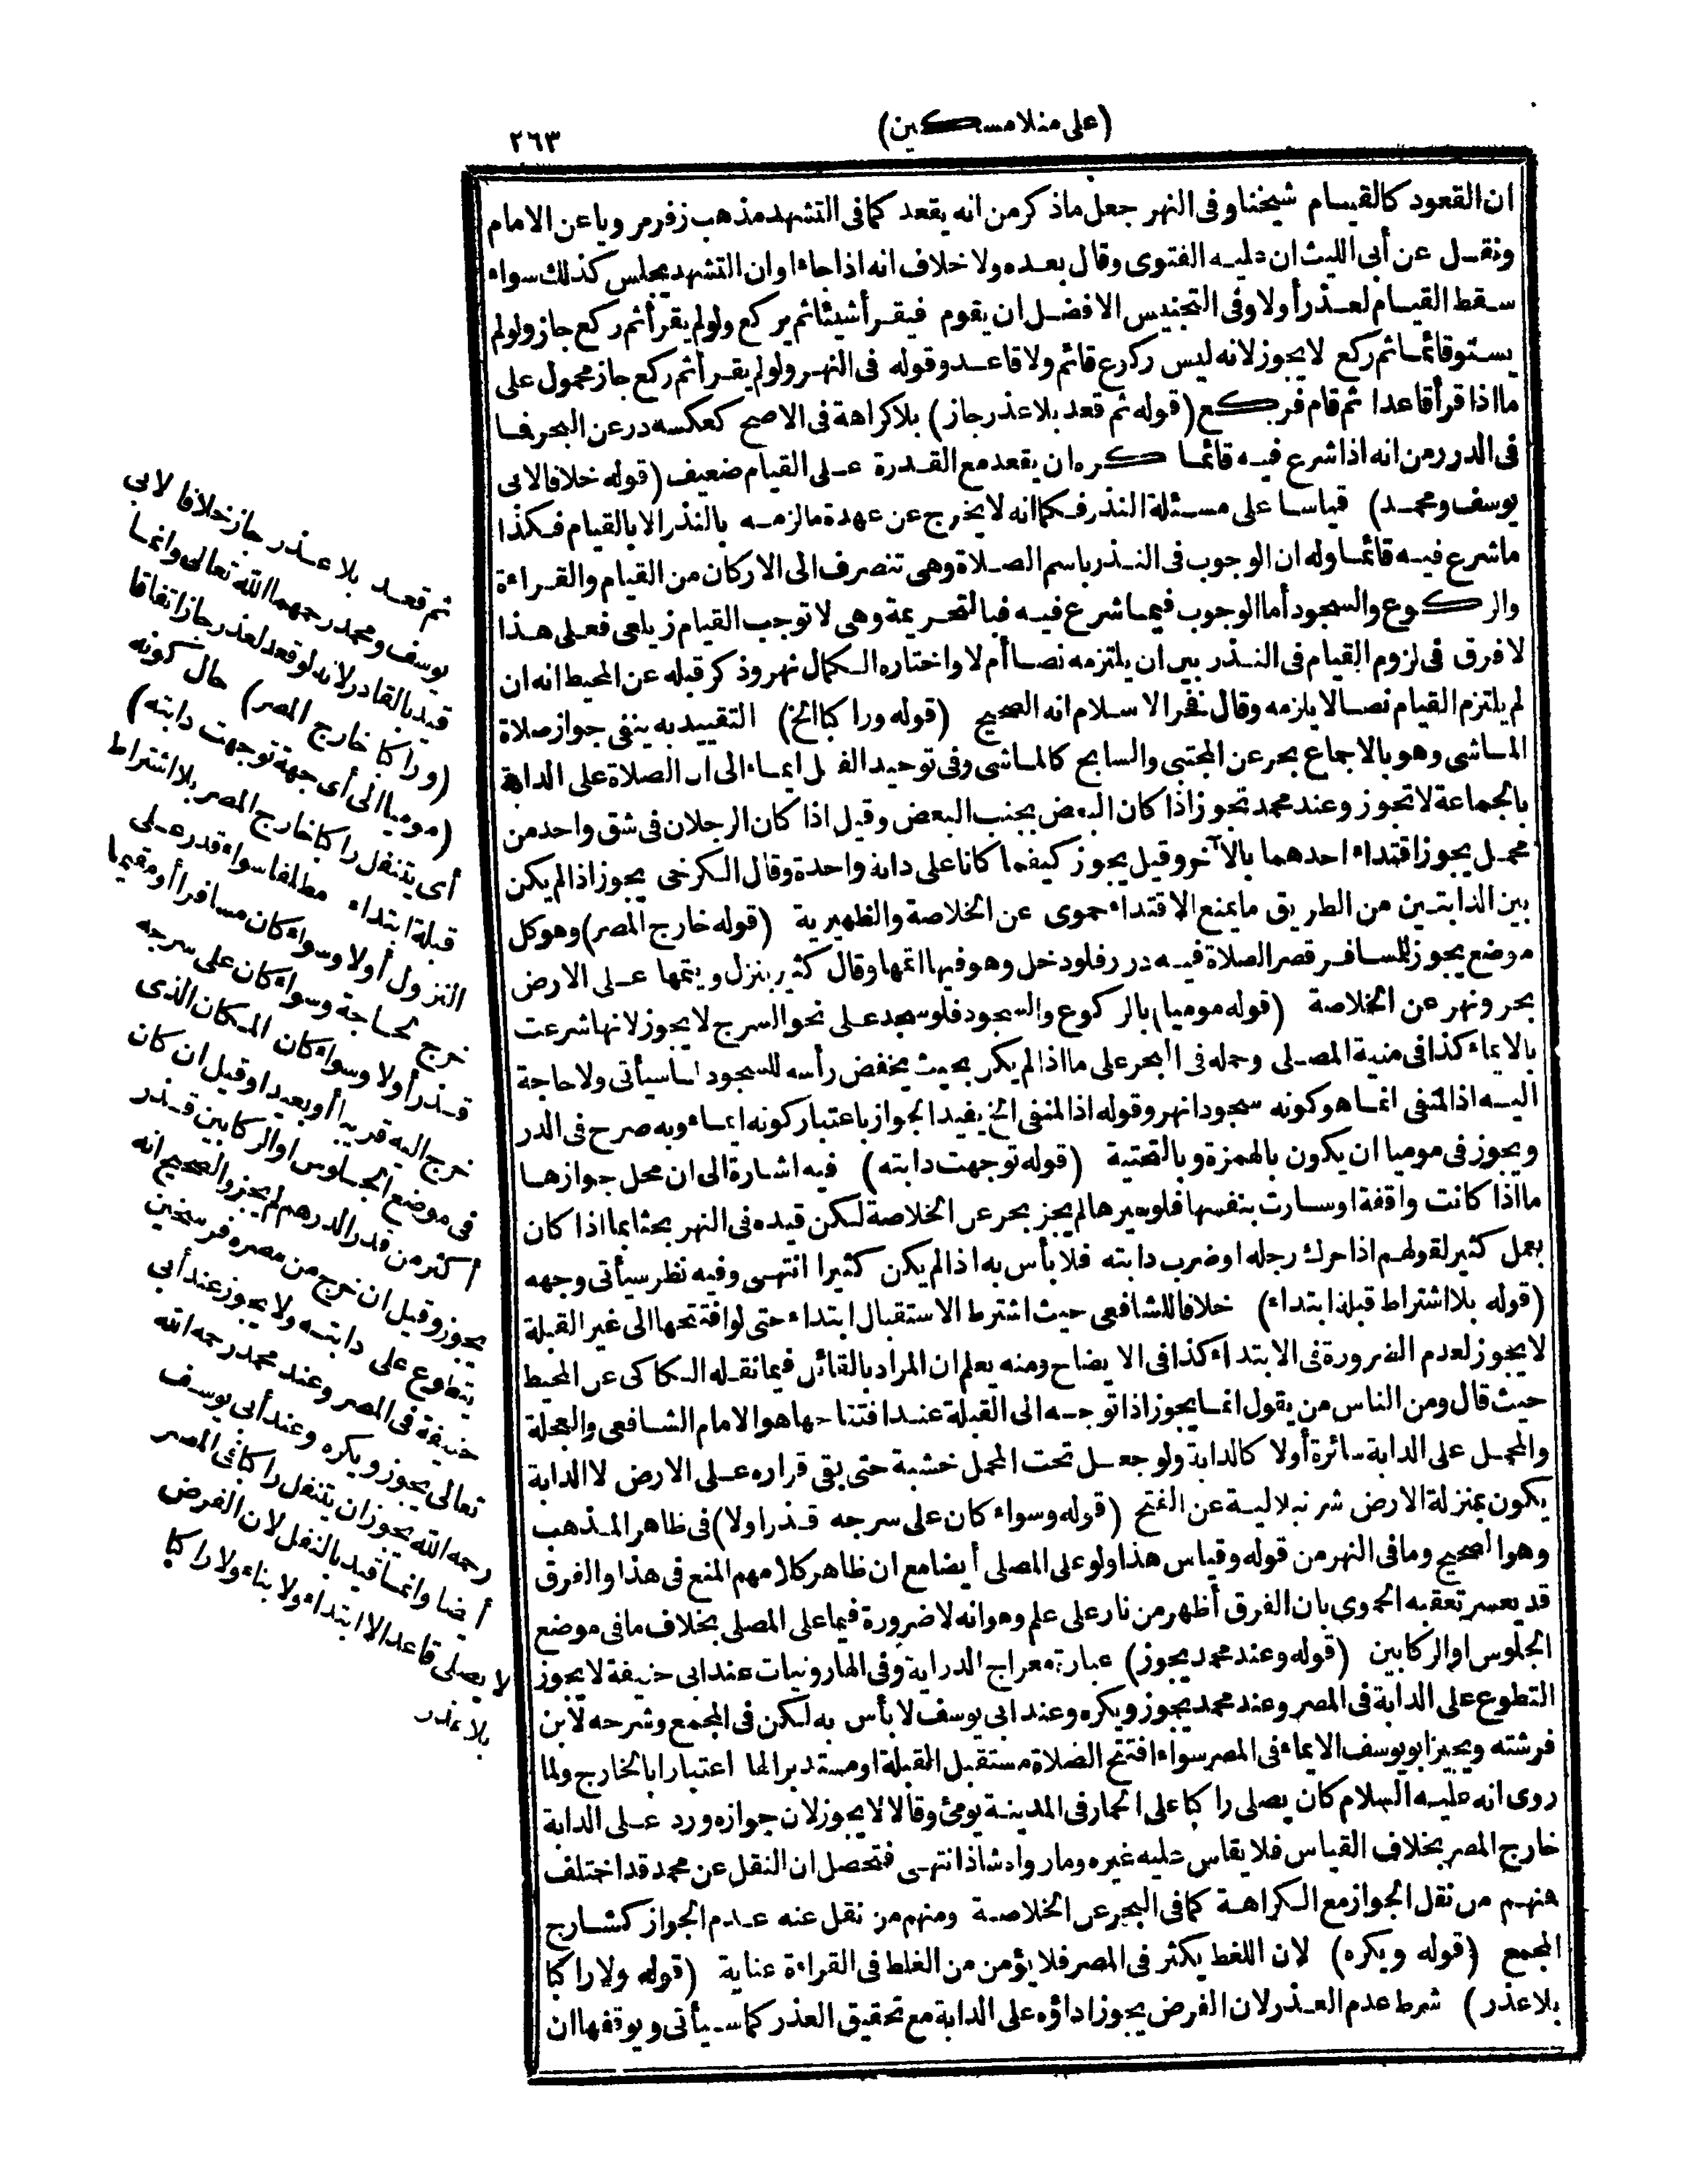 (على منلا مسكين)
٢٦٣
ان القعود كالقيام شيخنا وفى النهر جعل ماذكر من انه يقعد كما فى التشهد مذهب زفر مرويا عن الامام
ونقل عن أبى الليث ان عليه الفتوى وقال بعده ولا خلاف انه اذا جاء اوان التشهد يجلس كذلك سواء
سقط القيام لعذر أولا وفى التجنيس الافضل ان يقوم فيقرأ شيئا ثم يركع ولولم يقرأ ثم ركع جاز ولولم
يستو قائما ثم ركع لا يجوز لانه ليس ركوع قائم ولا قاعد وقوله فى النهر ولولم يقرأ ثم ركع جاز محمول على
ما اذا قرأ قاعدا ثم قام فركع (قوله ثم قعد بلا عذر جاز) بلا كراهة فى الاصح كعكسه در عن البحر فما
فى الدرر من انه اذا شرع فيه قائما كره ان يقعد مع القدرة على القيام ضعيف (قوله خلافا لابى
يوسف ومحمد) قياسا على مسئلة النذر فكما انه لا يخرج عن عهدة مالزمه بالنذر الا بالقيام فكذا
ماشرع فيه قائما وله ان الوجوب فى النذر باسم الصلاة وهى تنصرف الى الاركان من القيام والقراءة
والركوع والسجود أما الوجوب فيما شرع فيه فبالتحريمة وهى لا توجب القيام زيلعى فعلى هذا
لا فرق فى لزوم القيام فى النذر بين ان يلتزمه نصا أم لا واختاره الكمال نهر وذكر قبله عن المحيط انه ان
لم يلتزم القيام نصا لا يلزمه وقال فخر الاسلام انه الصحيح (قوله وراكبا الخ) التقييد به ينفى جواز صلاة
الماشى وهو بالاجماع بحر عن المجتبى والسابح كالماشى وفى توحيد الفعل ايماء الى ان الصلاة على الدابة
بالجماعة لا تجوز وعند محمد تجوز اذا كان البعض بجنب البعض وقيل اذا كان الرجلان فى شق واحد من
محمل يجوز اقتداء احدهما بالآخر وقيل يجوز كيفما كانا على دابة واحدة وقال الكرخى يجوز اذا لم يكن
بين الدابتين من الطريق ما يمنع الاقتداء حموى عن الخلاصة والظهيرية (قوله خارج المصر) وهو كل
موضع يجوز للمسافر قصر الصلاة فيه درر فلو دخل وهو فيها اتمها وقال كثير ينزل ويتمها على الارض
بحر ونهر عن الخلاصة (قوله موميا) بالركوع والسجود فلو سجد على نحو السرج لا يجوز لانها شرعت
بالايماء كذا فى منية المصلى وحمله فى البحر على ما اذا لم يكن بحيث يخفض رأسه للسجود لما سيأتى ولا حاجة
اليه اذ المنفى انما هو كونه سجودا نهر وقوله اذ المنفى الخ يفيد الجواز باعتبار كونه ايماء وبه صرح فى الدر
ويجوز فى موميا ان يكون بالهمزة وبالتحتية (قوله توجهت دابته) فيه اشارة الى ان محل جوازها
ما اذا كانت واقفة او سارت بنفسها فلو سيرها لم يجز بحر عن الخلاصة لكن قيده فى النهر بحثا بما اذا كان
بعمل كثير لقولهم اذا حرك رجله او ضرب دابته فلا بأس به اذا لم يكن كثيرا انتهى وفيه نظر سيأتى وجهه
(قوله بلا اشتراط قبلة ابتداء) خلافا للشافعى حيث اشترط الاستقبال ابتداء حتى لو افتتحها الى غير القبلة
لا يجوز لعدم الضرورة فى الابتداء كذا فى الايضاح ومنه يعلم ان المراد بالقائل فيما نقله الكاكى عن المحيط
حيث قال ومن الناس من يقول انما يجوز اذا توجه الى القبلة عند افتتاحها هو الامام الشافعى والعجلة
والمحمل على الدابة سائرة أولا كالدابة ولو جعل تحت المحمل خشبة حتى بقى قراره على الارض لا الدابة
يكون بمنزلة الارض شرنبلالية عن الفتح (قوله وسواء كان على سرجه قذرا ولا) فى ظاهر المذهب
وهو الصحيح وما فى النهر من قوله وقياس هذا ولو على المصلى أيضا مع ان ظاهر كلامهم المنع فى هذا والفرق
قد يعسر تعقبه الحموى بان الفرق أظهر من نار على علم وهو انه لا ضرورة فيما على المصلى بخلاف ما فى موضع
الجلوس او الركابين (قوله وعند محمد يجوز) عبارة معراج الدراية وفى الهارونيات عند ابى حنيفة لا يجوز
التطوع على الدابة فى المصر وعند محمد يجوز ويكره وعند ابى يوسف لا بأس به لكن فى المجمع وشرحه لابن
فرشته ويجيز ابو يوسف الايماء فى المصر سواء افتتح الصلاة مستقبل القبلة او مستدبرا لها اعتبارا بالخارج ولما
روى انه عليه السلام كان يصلى راكبا على الحمار فى المدينة يومئ وقالا لا يجوز لان جوازه ورد على الدابة
خارج المصر بخلاف القياس فلا يقاس عليه غيره وما رواه شاذ انتهى فتحصل ان النقل عن محمد قد اختلف
فمنهم من نقل الجواز مع الكراهة كما فى البحر عن الخلاصة ومنهم من نقل عنه عدم الجواز كشارح
المجمع (قوله ويكره) لان اللغط يكثر فى المصر فلا يؤمن من الغلط فى القراءة عناية (قوله ولا راكبا
بلا عذر) شرط عدم العذر لان الفرض يجوز اداؤه على الدابة مع تحقيق العذر كما سيأتى ويوقفها ان
ثم قعد بلا عذر جاز خلافا لابى
يوسف ومحمد رحمهما الله تعالى وانما
قيد بالقادر لانه لو قعد لعذر جاز اتفاقا
(وراكبا خارج المصر) حال كونه
(موميا الى أى جهة توجهت دابته)
أى يتنفل راكبا خارج المصر بلا اشتراط
قبلة ابتداء مطلقا سواء قدر على
النزول أولا وسواء كان مسافرا أو مقيما
خرج لحاجة وسواء كان على سرجه
قذر أولا وسواء كان المكان الذى
خرج اليه قريبا أو بعيدا وقيل ان كان
فى موضع الجلوس او الركابين قذر
أكثر من قدر الدرهم لم يجز والصحيح انه
يجوز وقيل ان خرج من مصره فرسخين
يتطوع على دابته ولا يجوز عند أبى
حنيفة فى المصر وعند محمد رحمه الله
تعالى يجوز ويكره وعند أبى يوسف
رحمه الله يجوز ان يتنفل راكبا فى المصر
أيضا وانما قيد بالنفل لان الفرض
لا يصلى قاعدا لا ابتداء ولا بناء ولا راكبا
بلا عذر